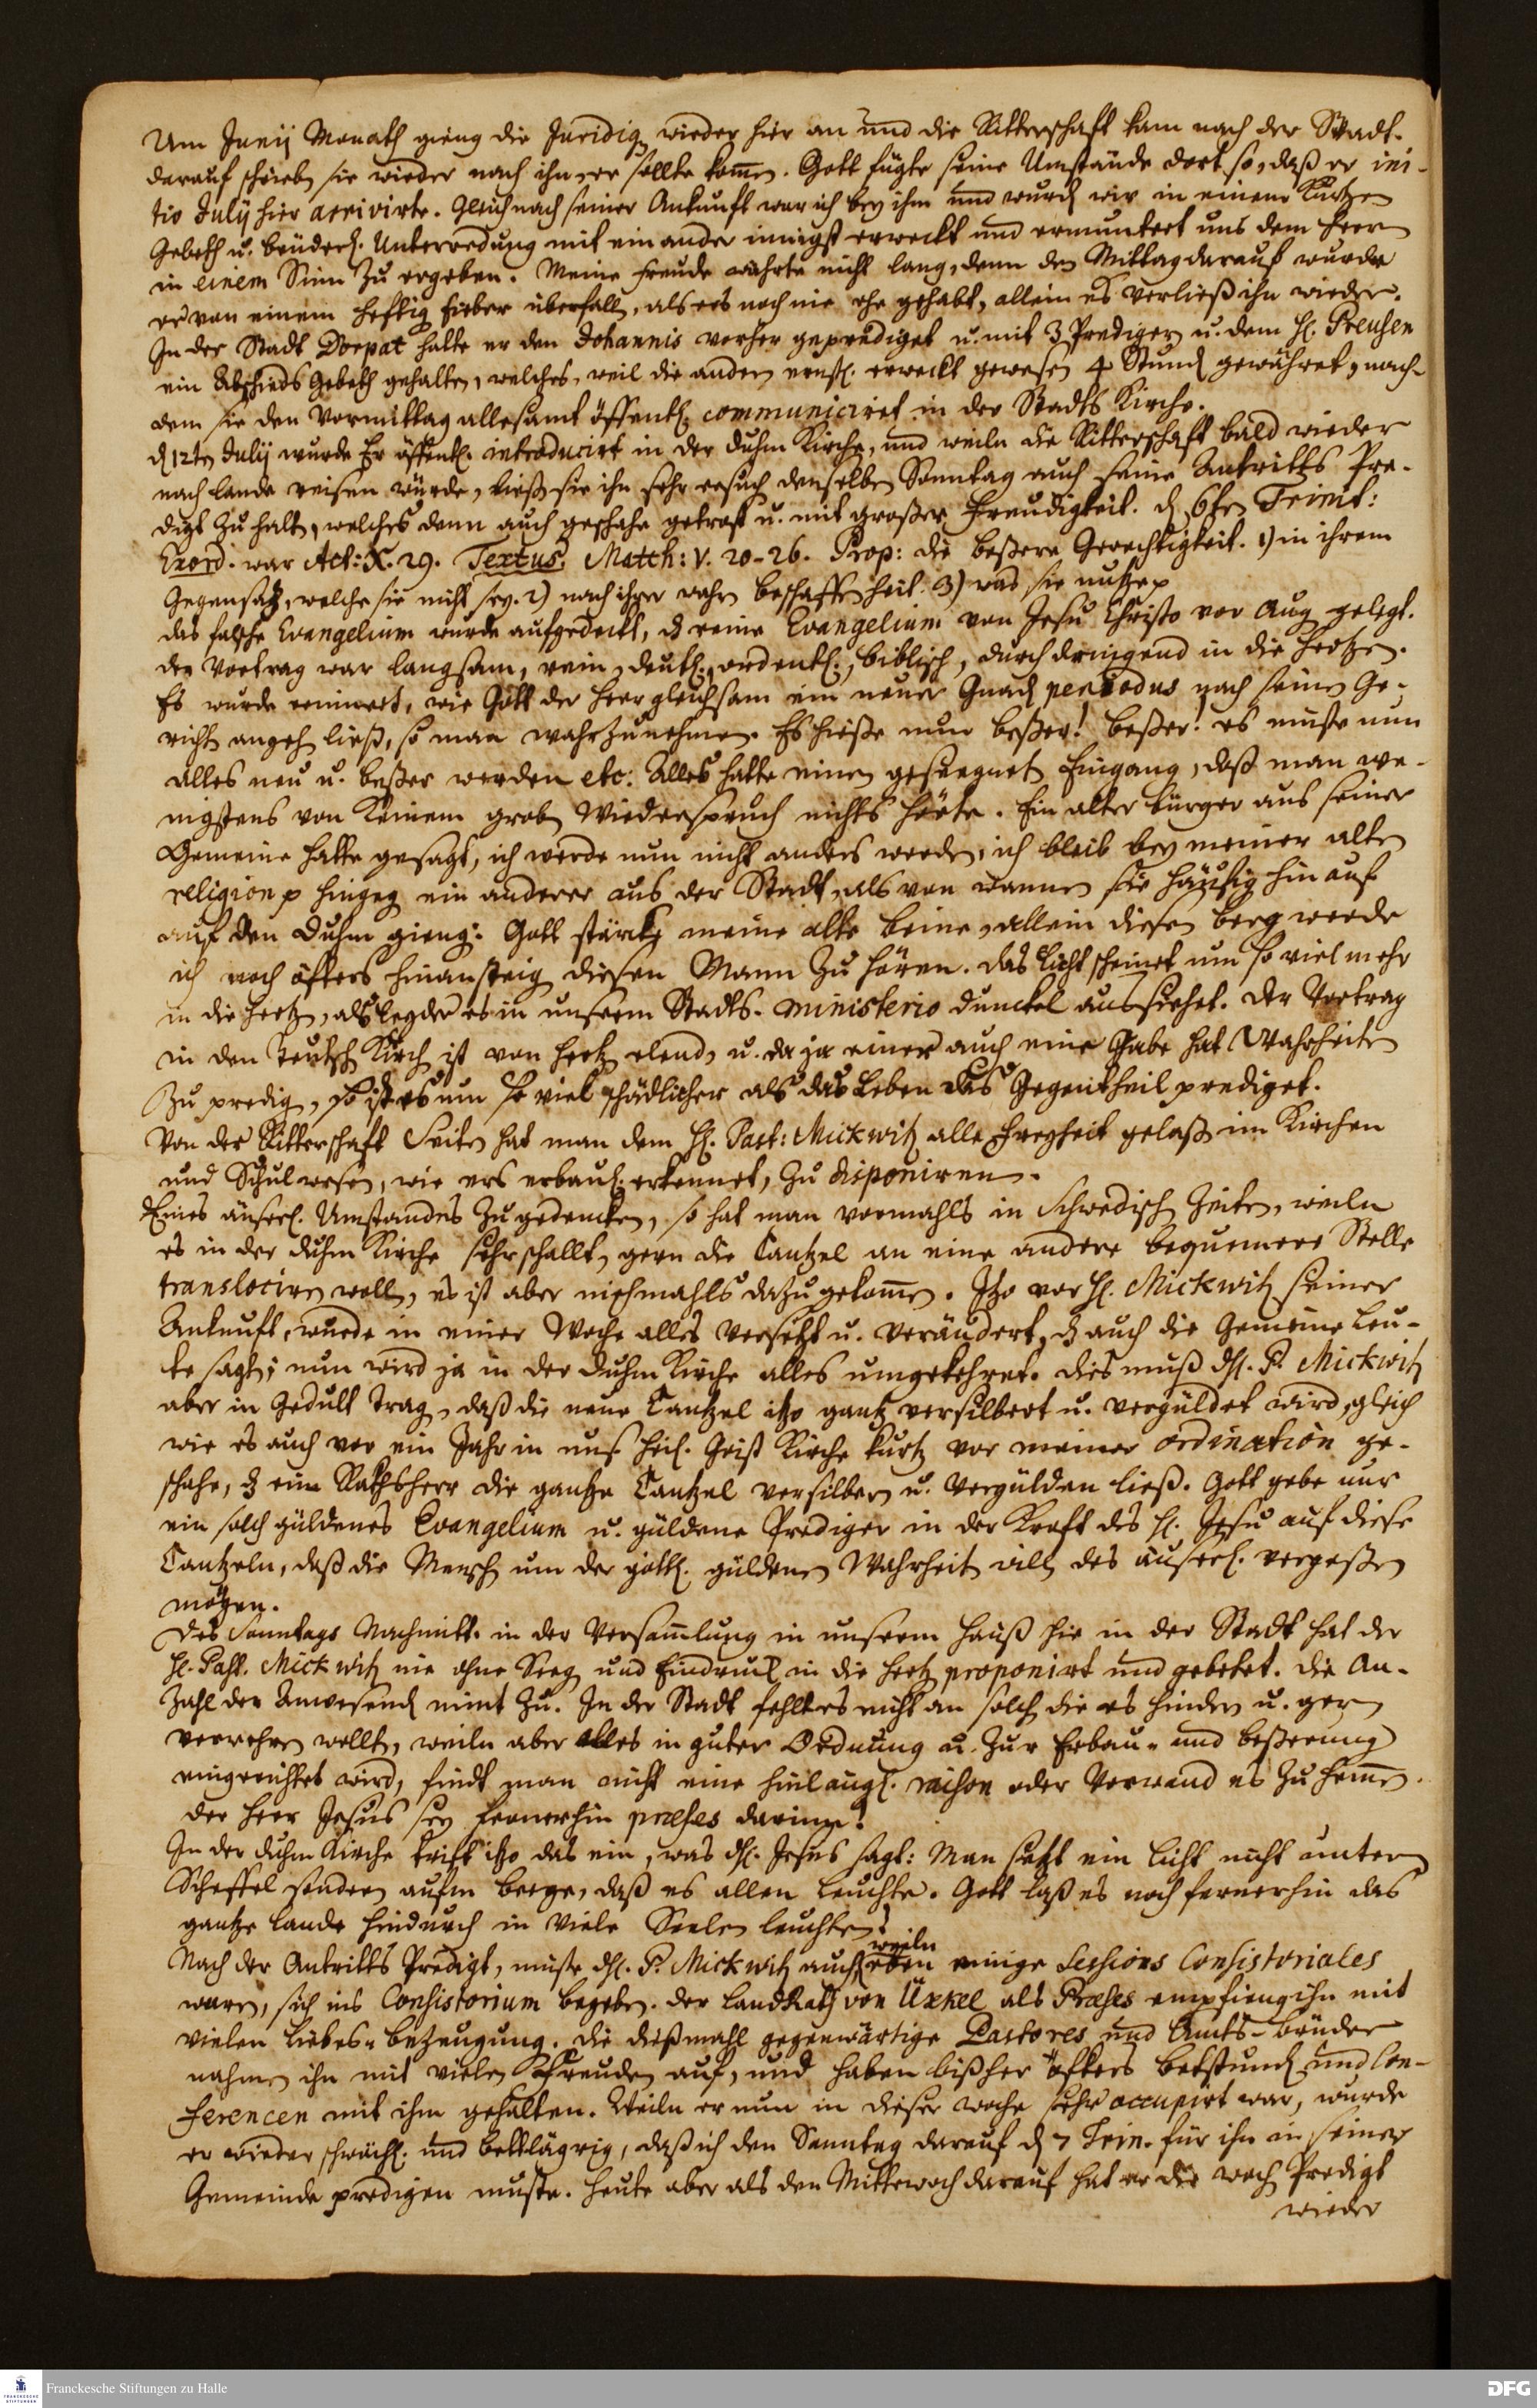 Um Junij Monath gieng die Juridig wieder hier an und die Ritterschaft kam nach der Stadt.
darauf schrieb sie wieder nach ihn, er sollte kom̄en. Gott fügte seine Umstände dort so, daß er ini-
tio Julij hier arrivirte. Gleich nach seiner Ankunft war ich bey ihm und wurd wir in einem Kurtzen
Gebeth u. brüderl. Unterredung mit ein ander innigst erweckt und ermuntert uns dem Herrn
in einem Sinn zu ergeben. Meine Freude währte nicht lang, denn den Mittag darauf wurde
er von einem hefftig Fieber überfall, als ers noch nie ehe gehabt, allein es verließ ihn wieder.
In der Stadt Dorpat hatte er den Johannis vorher geprediget u. mit 3 Prediger u. dem H. Preusen
ein Abschieds Gebeth gehalten, welches, weil die anden ernstl. erweckt gewesen 4 Stund gewähret, nach-
dem sie den Vormittag allesamt öffentl. communiciret in der Stadts Kirche.
d 12ten Julij wurde Er öffentl. introducirt in der Duhm Kirche, und weiln die Ritterschaft bald wieder
nach Lande reisen würde, ließ sie ihn sehr ersuch denselben Sonntag auch seine Antritts Pre-
digt zu halt, welches denn auch geschahe getrost u. mit großer Freudigkeit. d 6ten Trinit:
Exord. war Act: X. 29. Textus. Matth: V. 20-26. Prop: die beßere Gerechtigkeit. 1) in ihrem
Gegensatz, welche sie nicht sey. 2) nach ihrer wahre beschaffenheit. 3) was sie nutze p
das falsche Evangelium wurde aufgedeckt, d reine Evangelium von Jesu Christo vor Aug gelegt.
der Vortrag war langsam, rein, deutl., ordentl., biblisch, durchdringend in die Hertzen.
Es wurde erinnert, wie Gott der Herr gleichsam ein neuer Gnad periodus nach seinen Ge-
richt angeh ließ, so man wahrzunehmen. Es hieße nun beßer! beßer! es müste nun
alles neu u. beßer werden etc. Alles hatte einen gesegnet Eingang, daß man we-
nigstens von Keinem grob Wiederspruch nichts hörte. Ein alter bürger aus seiner
Gemeine hatte gesagt, ich werde nun nicht anders werden, ich bleib bey meiner alten
religion p hingeg ein anderer aus der Stadt, als von dannen sie häufig hin auf
auf den Duhm gieng: Gott stärcke meine alte beine, allein diesen berg werde
ich noch öfters hinansteig diesen Mann zu hören. das Licht scheinet um so viel mehr
in die Hertz, als leyder es in unserm Stadts-ministerio dunckel aussiehet. der Vortrag
in den Teutsch Kirch ist von Hertz elend, u. da ja einer auch eine Gabe hat Wahrheiten
zu predig, so ist es um so viel schädlicher als das Leben das Gegentheil prediget.
Von der Ritterschaft Seiten hat man dem H. Past: Mickwitz alle Freyheit gelaß im Kirchen
und Schulwesen, wie ers erbaul. erkennet, zu disponiren.
Eines äuserl. Umstandes zu gedencken, so hat man vormahls in Schwedisch Zeiten, weiln
es in der Duhm Kirche sehr schallt, gern die Cantzel an eine andere bequemere Stelle
translociren woll, es ist aber niemahls dazu gekom̄en. Itzo vor H. Mickwitz seiner
Ankunft, wurde in einer Woche alles versetzt u. verändert, d auch die Gemeine Leu-
te sagt; nun wird ja in der Duhm Kirche alles umgekehret. dies muß dH. P. Mickwitz
aber in Gedult Trag, daß die neue Cantzel itzo gantz versilbert u. vergüldet wird, gleich
wie es auch vor ein Jahr in uns Heil. Geist Kirche kurtz vor meiner ordination ge-
schahe, d ein Rathsherr die gantze Cantzel versilbern u. vergülden ließ. Gott gebe nur
ein solch güldenes Evangelium u. güldene Prediger in der Kraft des H. Jesu auf diese
Cantzeln, daß die Mensch um der göttl. güldenen Wahrheit will des äuserl. vergeßen
mögen.
Des Sonntags Nachmitt. in der Versam̄lung in unserm Hauß hie in der Stadt hat der
H. Past. Mickwitz nie ohne Seeg und Eindruck in die Hertz proponirt und gebetet. die An-
zahl der Anwesend nimt zu. In der Stadt fehlt es nicht an solch die es hindern u. gern
verwehren wollt, weiln aber alles in guter Ordnung u. zur Erbau- und Beßerung
eingerichtet wird, findt man nicht eine hinlängl. raison oder Vorwand es zu hem̄en.
der Herr Jesus sey fernerhin præses darinne!
In der Duhm Kirche trifft itzo das ein, was dH. Jesus sagt: Man setzt ein Licht nicht untern
Scheffel sondern aufm Berge, daß es allen leuchte. Gott laß es noch fernerhin das
gantze Lande hindurch in viele Seelen leuchten!
Nach der Antritts Predigt, muste dH. P. Mickwitz auch weiln eben einige Sessions Consistoriales
waren, sich ins Consistorium begeben. der LandRath von Üxkel als Præses empfieng ihn mit
vielen Liebes-bezeugung. die dießmahl gegenwärtige Pastores und Amts-brüder
nahmen ihn mit vielen Freuden auf, und haben bißher öfters betstund und Con-
ferencen mit ihm gehalten. Weiln er nun in dieser woche sehr occupirt war, wurde
er wieder schwächl. und bettlägrig, daß ich den Sonntag darauf d 7 Trin. für ihn in seiner
Gemeinde predigen muste. Heute aber als den Mittewoch darauf hat er die woch Predigt
wieder
Franckesche Stiftungen zu Halle
DFG